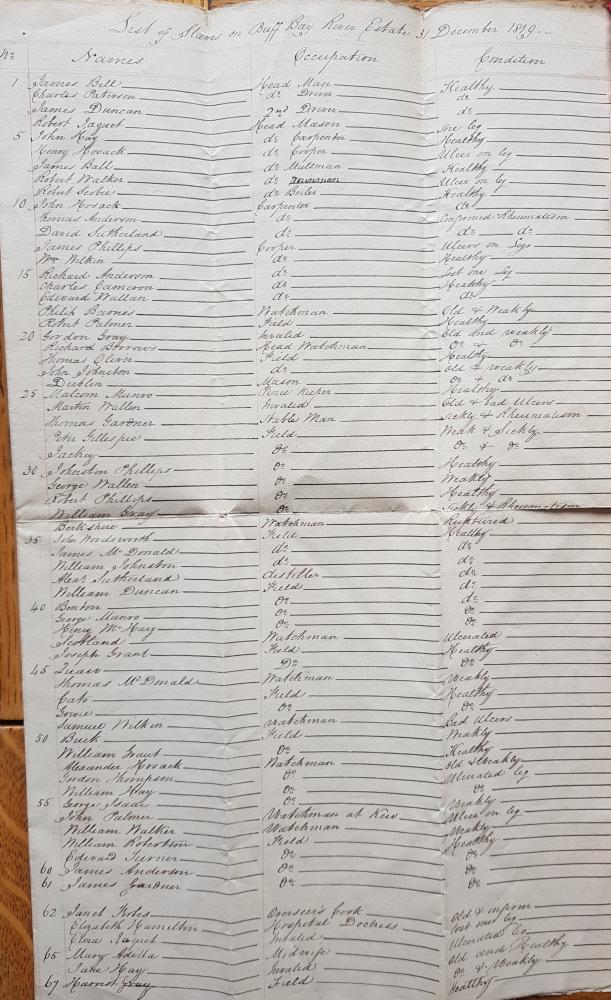 List of Slaves on Buff Bay River Estate 31 December 1819.
No. Names Occupation Condition
1 James Bell Head Man Healthy
Charles Paterson do Driver do
James Duncan 2nd Driver do
Robert Jaquet Head Mason One leg
5 John Hay do Carpenter Healthy
Henry Hosack do Cooper Ulcer on leg
James Ball do Healthy
Robert Walker do Ulcer on leg
Robert Scobie do Boiler Healthy
10 John Hosack Carpenter do
Thomas Anderson do Confirmed Rheumatism
David Sutherland do do do
James Phillips Cooper Ulcers on Legs
Wm Wilkin do Healthy
15 Richard Anderson do Lost one leg
Charles Cameron do Healthy
Edward Wallan do do
Philip Barnes Watchman Old & Weakly
Robert Palmer Field Healthy
20 Gordon Gray Invalid Old and weakly
Richard Burrows Head Watchman Do & Do
Thomas Oliver Field Healthy
John Johnston do Old & weakly
Dublin Mason Do & do
25 Malcom Munro Fence keeper Healthy
Martin Wallen Invalid Old & bad Ulcers
Thomas Gardner Stable Man Sickly & Rheumatism
Peter Gillespie Field Weak & Sickly
Jackey Do Do & Do
30 Johnston Phillips Do Healthy
George Wallen Do Weakly
Robert Phillips Do Healthy
William Gray Do Sickly & Rheumatism
Berkshire Watchman Ruptured
35 John Wordsworth Field Healthy
James McDonald do do
William Johnston do do
Alexr Sutherland distiller do
William Duncan Field do
40 Benton Do do
George Munro Do Do
Henry McHary Do Do
Scotland Watchman Ulcerated
Joseph Grant Field Healthy
45 Quaw Do Do
Thomas McDonald Watchman Weakly
Cato Field Healthy
Gowie Do Do
Samuel Wilkin watchman Bad Ulcers
50 Buck Field Weakly
William Grant Do Healthy
Alexander Hosack Watchman Old & Weakly
Gordon Thompson Do Ulcerated leg
William Hay Do Do
55 George Isaac Do Weakly
John Palmer Watchman at Kew Ulcer on leg
William Walker Watchman Weakly
William Robertson Field Healthy
Edward Turner Do Do
60 James Anderson Do Do
61 James Gardner Do Do
62 Janet Forbes Overseer's Cook Old & infirm
Elizabeth Hamilton Hospital Doctress Lost one leg
Eliza Jaquet Invalid Ulcerated leg
65 Mary Adilla Midwife Old and Healthy
Jane Hay Invalid Do & Weakly
67 Harriot Gray Field Healthy